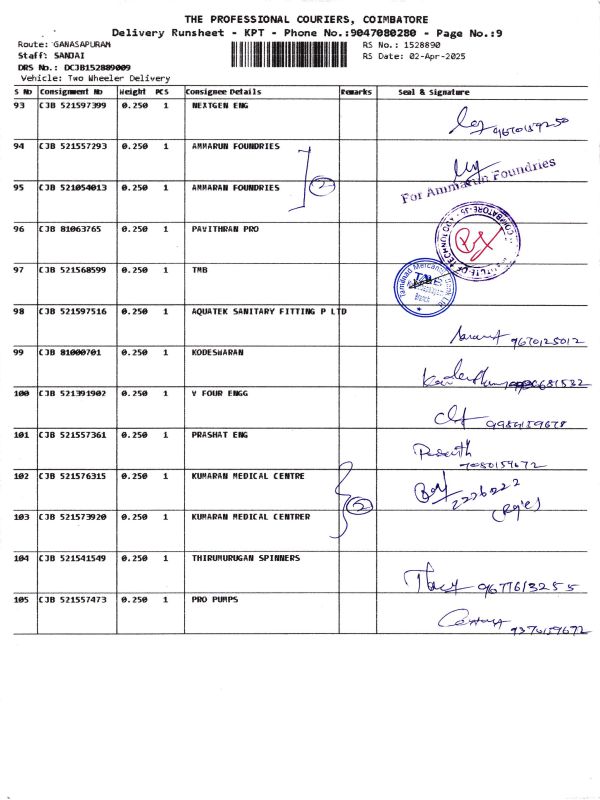 THE PROFESSIONAL COURIERS, COIMBATORE
Delivery Runsheet - KPT - Phone No.:9047080280 - Page No.:9
Route: GANASAPURAM
RS No.: 1528890
Staff: SANJAI
RS Date: 02-Apr-2025
DRS No.: DCJB152889009
Vehicle: Two Wheeler Delivery
S No Consignment No Weight PCS Consignee Details Remarks Seal & Signature
93 CJB 521597399 0.250 1 NEXTGEN ENG
94 CJB 521557293 0.250 1 AMMARUN FOUNDRIES
For Ammarun Foundries
95 CJB 521054013 0.250 1 AMMARAN FOUNDRIES 2
96 CJB 81063765 0.250 1 PAVITHRAN PRO
97 CJB 521568599 0.250 1 TMB
98 CJB 521597516 0.250 1 AQUATEK SANITARY FITTING P LTD
9670125012
99 CJB 81000701 0.250 1 KODESWARAN
100 CJB 521391902 0.250 1 V FOUR ENGG
101 CJB 521557361 0.250 1 PRASHAT ENG
102 CJB 521576315 0.250 1 KUMARAN MEDICAL CENTRE
2
103 CJB 521573920 0.250 1 KUMARAN MEDICAL CENTRER
104 CJB 521541549 0.250 1 THIRUMURUGAN SPINNERS
9677613255
105 CJB 521557473 0.250 1 PRO PUMPS
9370159672